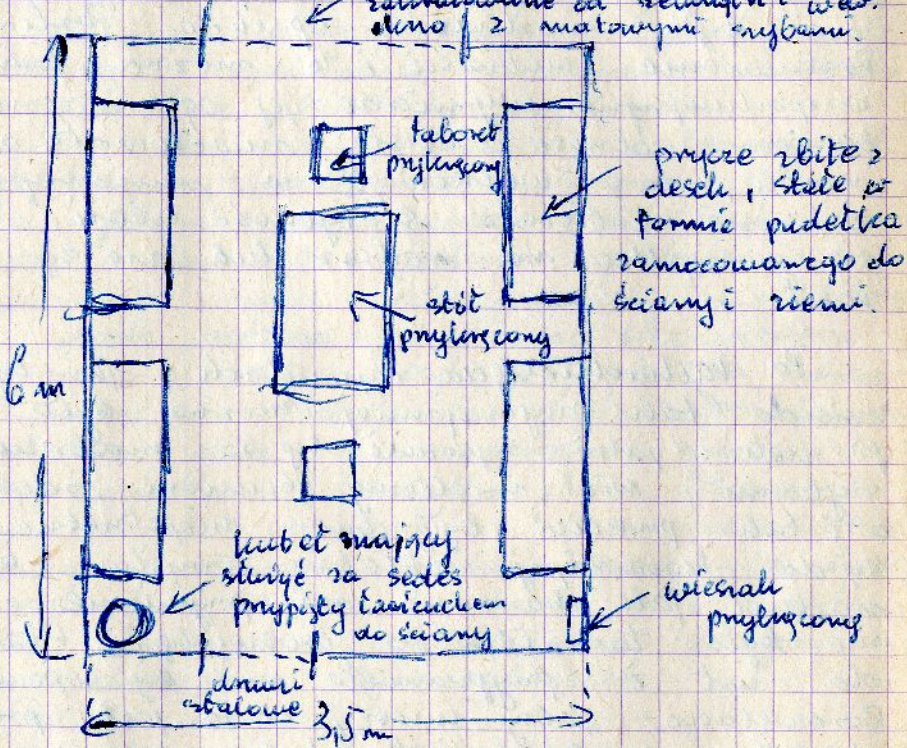 zamurowane od zewnątrz i wew.
okno z matowymi szybami.
taboret
przykręcony
prycze zbite z
desek, stałe w
formie pudełka
zamocowanego do
ściany i ziemi.
stół
przykręcony
6 m
kubeł mający
służyć za sedes
przypięty łańcuchem
do ściany
wieszak
przykręcony
drzwi
stalowe
3,5 m